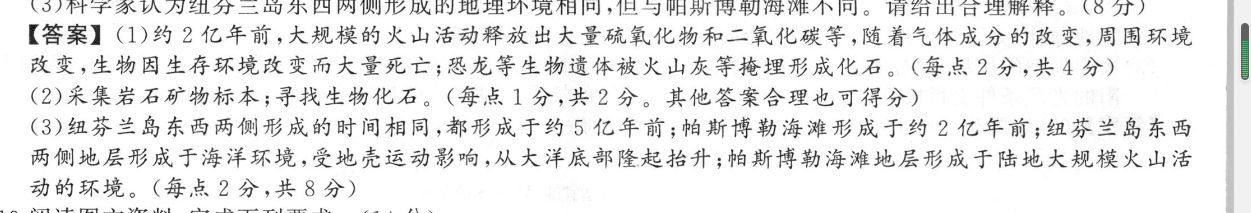 (3)科学家认为纽芬兰岛东西两侧形成的地理环境相同,但与帕斯博勒海滩不同。请给出合理解释。(8分)
【答案】(1)约2亿年前,大规模的火山活动释放出大量硫氧化物和二氧化碳等,随着气体成分的改变,周围环境
改变,生物因生存环境改变而大量死亡;恐龙等生物遗体被火山灰等掩埋形成化石。(每点2分,共4分)
(2)采集岩石矿物标本;寻找生物化石。(每点1分,共2分。其他答案合理也可得分)
(3)纽芬兰岛东西两侧形成的时间相同,都形成于约5亿年前;帕斯博勒海滩形成于约2亿年前;纽芬兰岛东西
两侧地层形成于海洋环境,受地壳运动影响,从大洋底部隆起抬升;帕斯博勒海滩地层形成于陆地大规模火山活
动的环境。(每点2分,共8分)